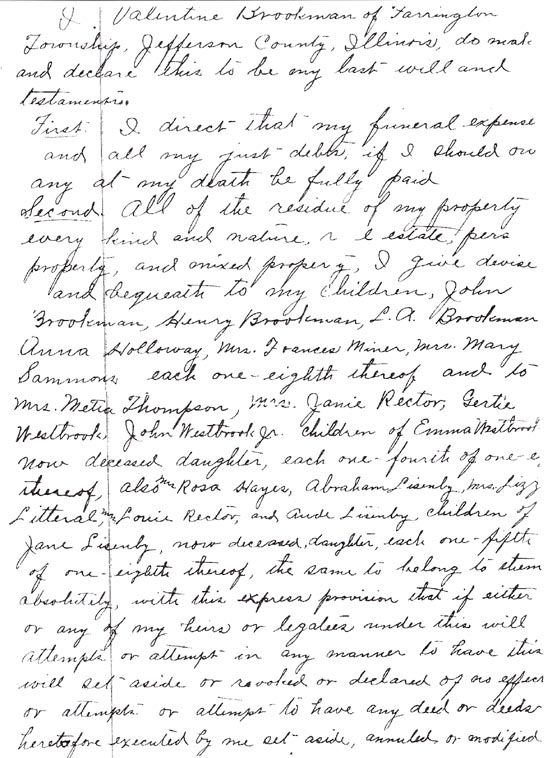 I Valentine Brookman of Farrington
Township, Jefferson County, Illinois, do mak
and declare this to be my last will and
testament.
First. I direct that my funeral expense
and all my just debts, if I should ow
any at my death be fully paid
Second. All of the residue of my property
every kind and nature, r l estate, pers
property, and mixed propery, I give devise
and bequeath to my children, John
Brookman, Henry Brookman, L.A. Brookman
Anna Holloway, Mrs. Frances Miner, Mrs. Mary
Sammons each one-eighth thereof and to
Mrs. Metia Thompson, Mrs. Janie Rector, Gertie
Westbrook, John Westbrook Jr. children of Emma Westbrook
now deceased daughter, each one-fourth of one-e
thereof, also Mrs Rosa Hayes, Abraham Lisenby, Mrs. Lizz
Litteral, Mrs Louie Rector, and Aude Lisenby children of
Jane Lisenby, now deceased, daughter, each one-fifth
of one-eighth thereof, the same to belong to them
absolutely, with this express provision that if either
or any of my heirs or legatees under this will
attempts or attempt in any manner to have this
will set aside or revoked or declared of no effect
or attempts or attempt to have any deed or deeds
heretofore executed by me set aside, annuled or modified